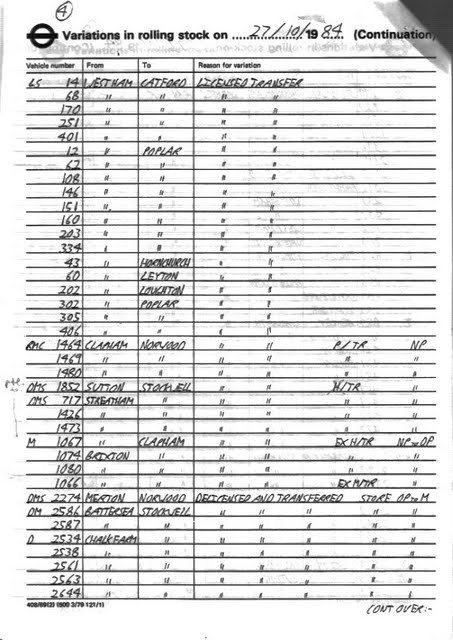 4
Variations in rolling stock on 27/10/1984 (Continuation)
Vehicle number From To Reason for variation
LS 14 WESTHAM CATFORD LICENSED TRANSFER
68 " " " "
170 " " " "
251 " " " "
401 " " " "
12 " POPLAR " "
62 " " " "
108 " " " "
146 " " " "
151 " " " "
160 " " " "
203 " " " "
334 " " " "
43 " HORNCHURCH " "
60 " LEYTON " "
202 " LOUGHTON " "
302 " POPLAR " "
305 " " " "
406 " " " "
RMC 1464 CLAPHAM NORWOOD " " P/TR NP
1469 " " " " " "
1480 " " " " " "
DMS 1852 SUTTON STOCKWELL " " H/TR "
DMS 717 STREATHAM " " " " "
1426 " " " " " "
1473 " " " " " "
M 1067 " CLAPHAM " " EX H/TR NP to OP
1074 BRIXTON " " " "
1080 " " " " "
1066 " " " " EX H/TR
DMS 2274 MERTON NORWOOD DELICENSED AND TRANSFERRED STORE OP to M
DM 2586 BATTERSEA STOCKWELL " " " " "
2587 " " " " " " "
D 2534 CHALKFARM " " " " " "
2538 " " " " " " "
2561 " " " " " " "
2563 " " " " " " "
2644 " " " " " " "
CONT OVER:-